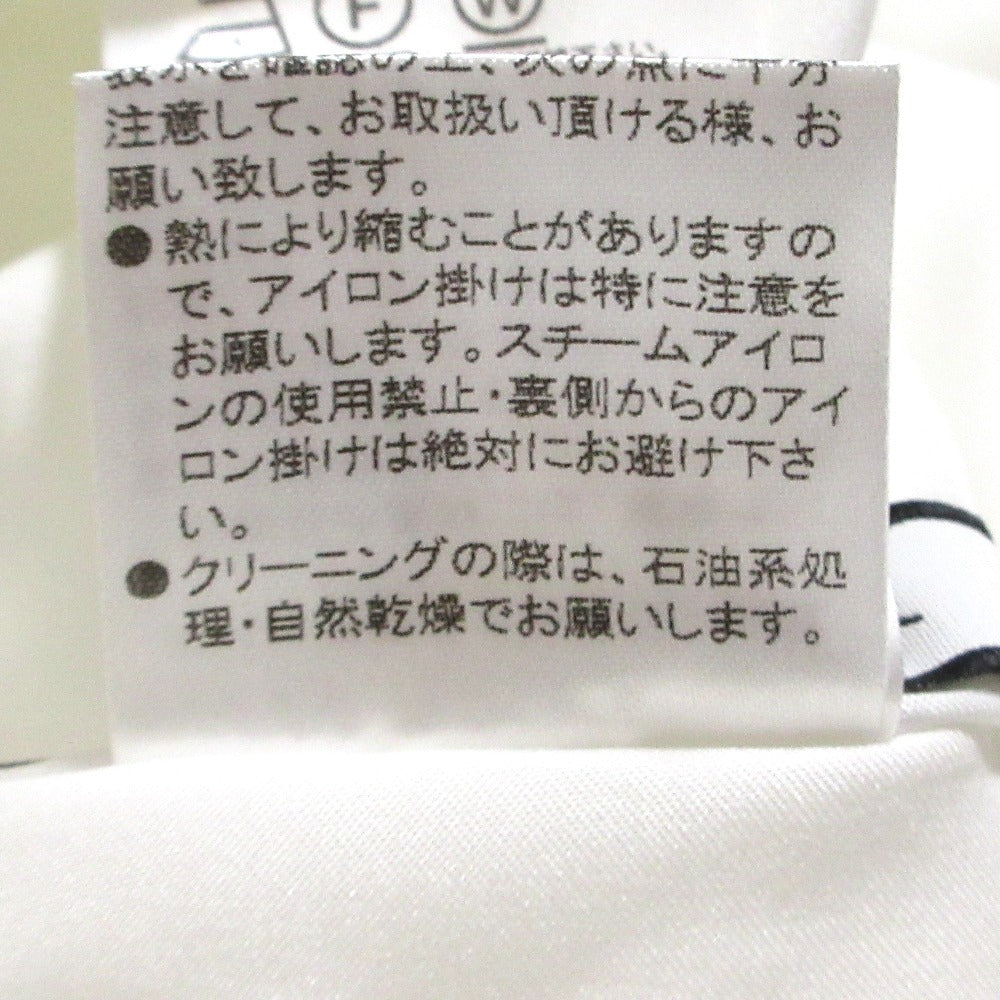 F
W
表示を確認の上、次の点に十分
注意して、お取扱い頂ける様、お
願い致します。
●熱により縮むことがありますの
で、アイロン掛けは特に注意を
お願いします。スチームアイロ
ンの使用禁止・裏側からのアイ
ロン掛けは絶対にお避け下さ
い。
●クリーニングの際は、石油系処
理・自然乾燥でお願いします。